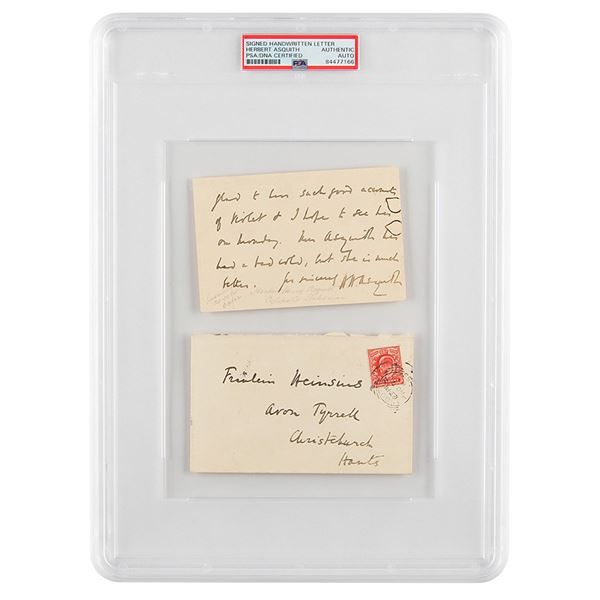 SIGNED HANDWRITTEN LETTER
HERBERT ASQUITH AUTHENTIC
PSA/DNA CERTIFIED AUTO
PSA 84477166
glad to have such good accounts
of Violet & I hope to see her
on Monday. Mrs Asquith has
had a bad cold, but she is much
better. yrs sincerely HHAsquith
Fräulein Heinsius
Avon Tyrrell
Christchurch
Hants